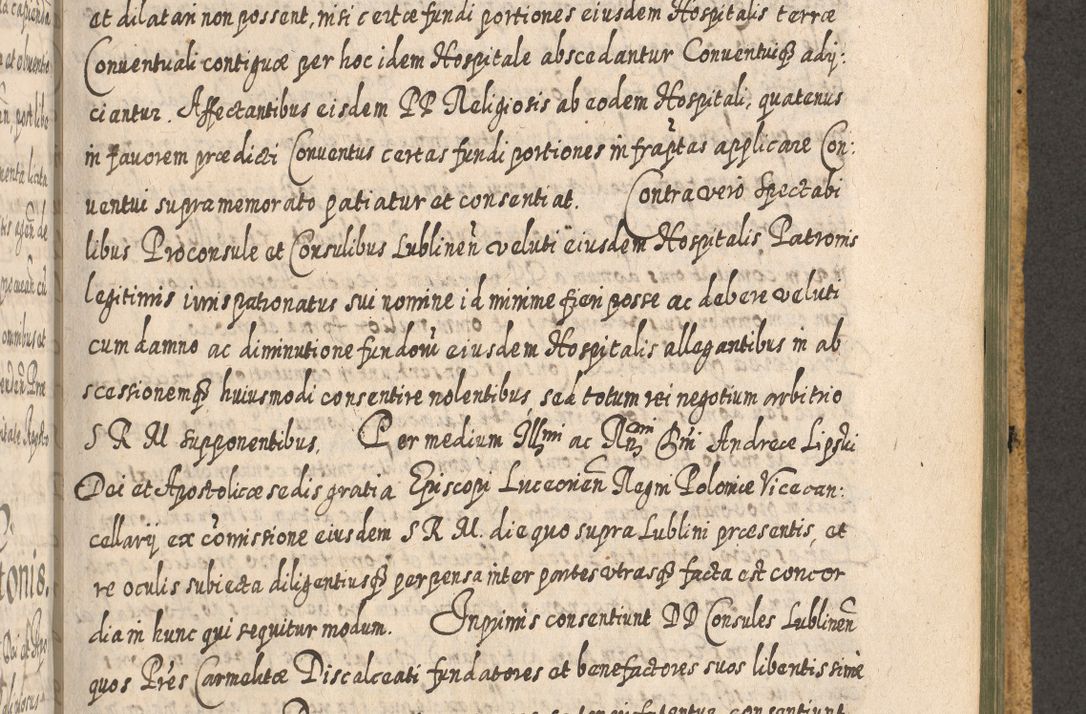 et dilatari non possent, nisi certæ fundi portiones eiusdem Hospitalis terræ
Conventuali contiguæ per hoc idem Hospitale abscedantur Conventuiq₃ adij:
ciantur. Affectantibus eisdem PP Religiosis ab eodem Hospitali, quatenus
in favorem prædicti Conventus certas fundi portiones infraptas applicare Con:
ventui supramemorato patiatur et consentiat. Contra vero Spectabi
libus Proconsule et Consulibus Lublinen̄ veluti eiusdem Hospitalis Patronis
legitimis iuris patronatus sui nomine id minime fieri posse ac debere veluti
cum damno ac diminutione fundoru̅ eiusdem Hospitalis allegantibus in ab
scessionemq₃ huiusmodi consentire nolentibus, sed totum rei negotium arbitrio
S R M supponentibus. Per medium Illmi ac Rn̄ Dni Andreæ Lipski
Dei et Apostolicæ sedis gratia Episcopi Luceorien̄ Regni Poloniæ Vicecan:
cellarij ex com̄issione eiusdem S R M. die quo supra Lublini præsentis, et
re oculis subiecta diligentiusq₃ perpensa inter partes utrasq₃ facta est concor
dia in hunc qui sequitur modum. Inprimis consentiunt DD Consules Lublinen̄
quos Pres Carmelitæ Discalceati fundatores et benefactores suos libentissime